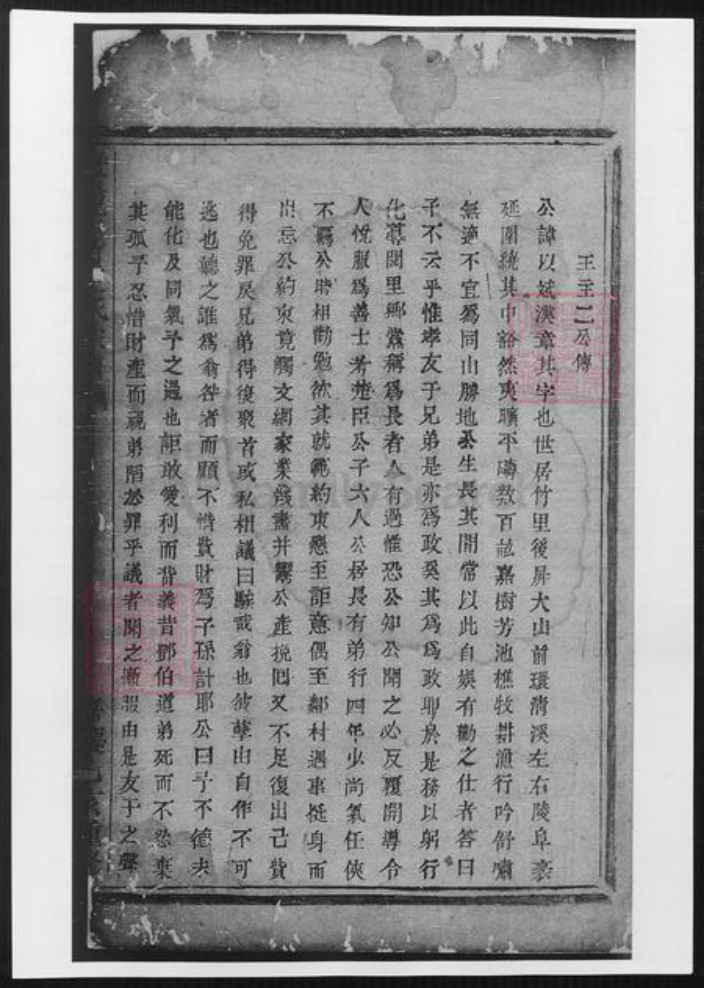 王主二公傳
公諱以斌漢章其字也世居竹里後屏大山前環清溪左右陵阜袤
延圍繞其中豁然爽曠平疇数百畝嘉樹芳池樵牧耕漁行吟舒嘯
無適不宜爲同山勝地公生長其間常以此自娱有勸之仕者答曰
子不云乎惟孝友于兄弟是亦爲政奚其爲爲政耶於是務以躬行
化導閭里鄉黨稱爲長者人有過惟恐公知公聞之必反覆開導令
人悅服爲善士若楚臣公子六人公居長有弟行四年少尚氣任俠
不羈公時相勸勉欲其就範約束懇至詎意偶至鄰村遇事挺身而
出忘公約束竟觸文網家業錢盡并鬻公產挽回又不足復出己貲
得免罪戾兄弟得復聚首或私相議曰騃哉翁也彼孽由自作不可
逭也聽之誰爲翁咎者而顧不惜貲財爲子孫計耶公曰予不德未
能化及同氣予之過也詎敢愛利而背義昔鄧伯道弟死而不忍棄
其孤予忍惜財產而視弟陷於罪乎議者聞之慚服由是友于之聲